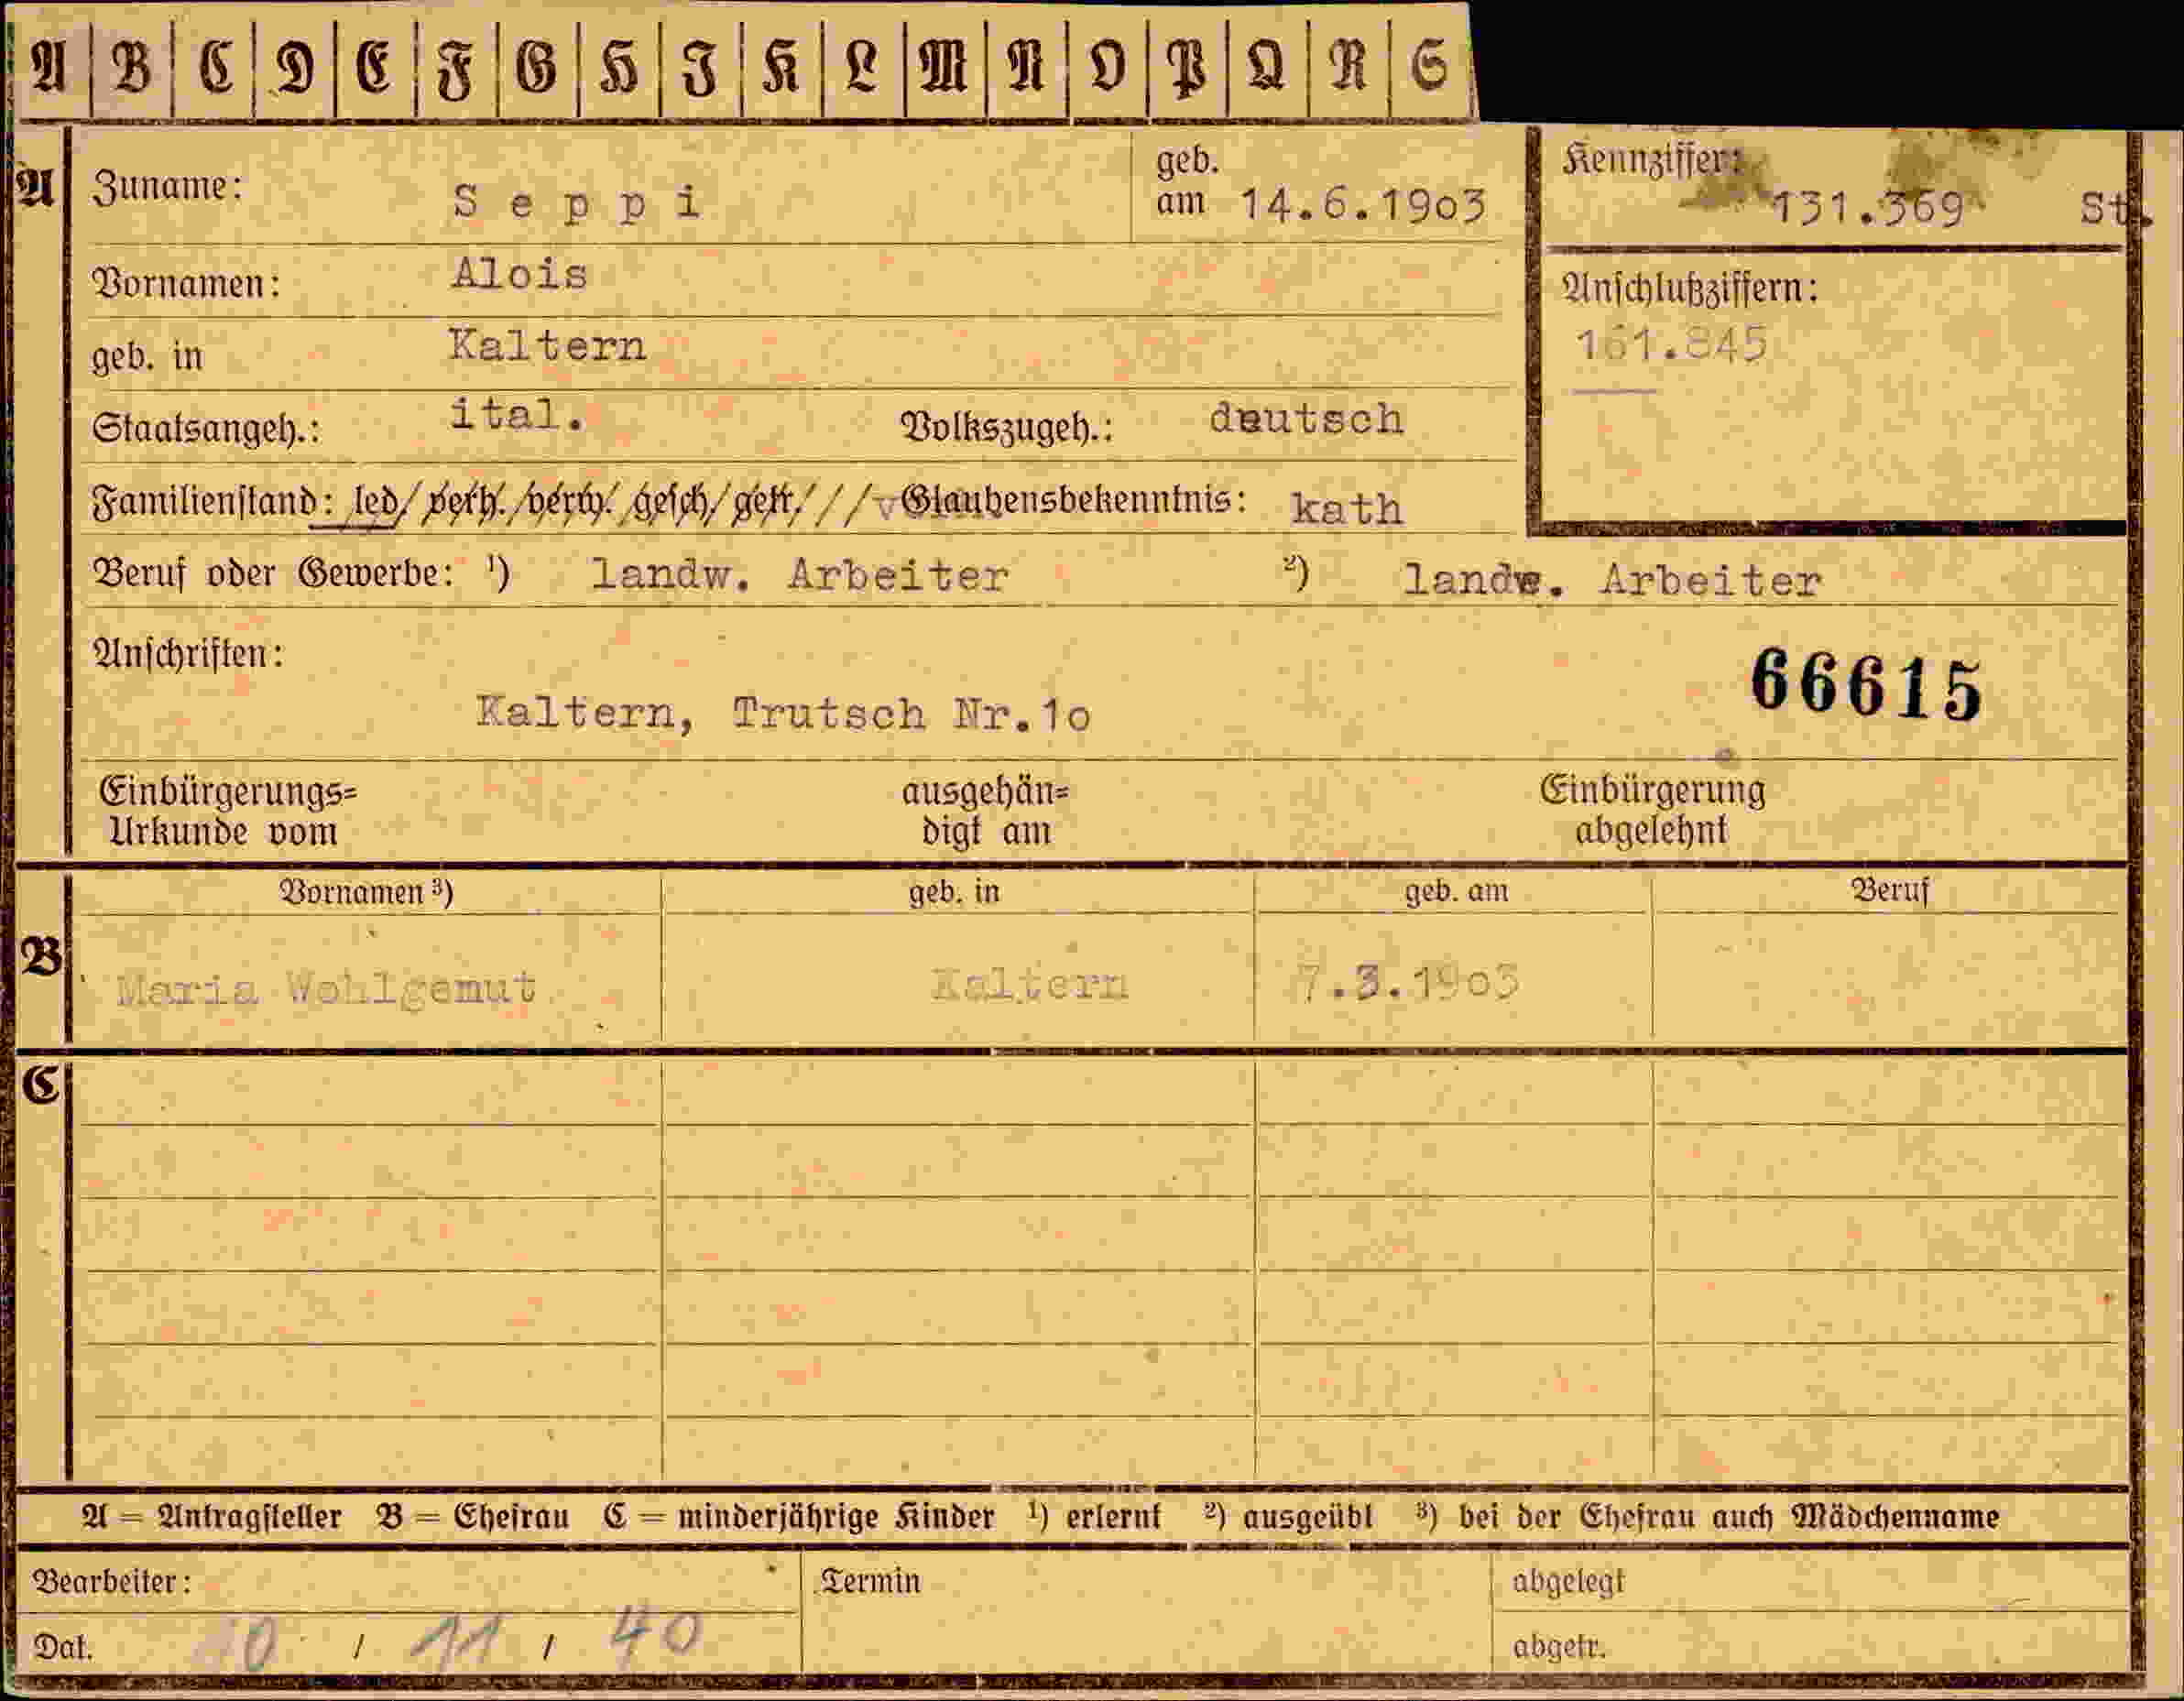 A B C D E F G H I K L M N O P Q R S
A Zuname: Seppi geb. am 14.6.1903 Kennziffer: 131.369 St.
Vornamen: Alois Anschlußziffern:
geb. in Kaltern 161.845
Staatsangeh.: ital. Volkszugeh.: deutsch
Familienstand: led/ verh./verw. gesch/getr./ / / Glaubensbekenntnis: kath
Beruf oder Gewerbe: ¹) landw. Arbeiter ²) landw. Arbeiter
Anschriften: 66615
Kaltern, Trutsch Nr.10
Einbürgerungs= ausgehän= Einbürgerung
Urkunde vom digt am abgelehnt
Vornamen ³) geb. in geb. am Beruf
B Maria Wohlgemut Kaltern 7.3.1903
C
A = Antragsteller B = Ehefrau C = minderjährige Kinder ¹) erlernt ²) ausgeübt ³) bei der Ehefrau auch Mädchenname
Bearbeiter: Termin abgelegt
Dat. 10 / 11 / 40 abgetr.